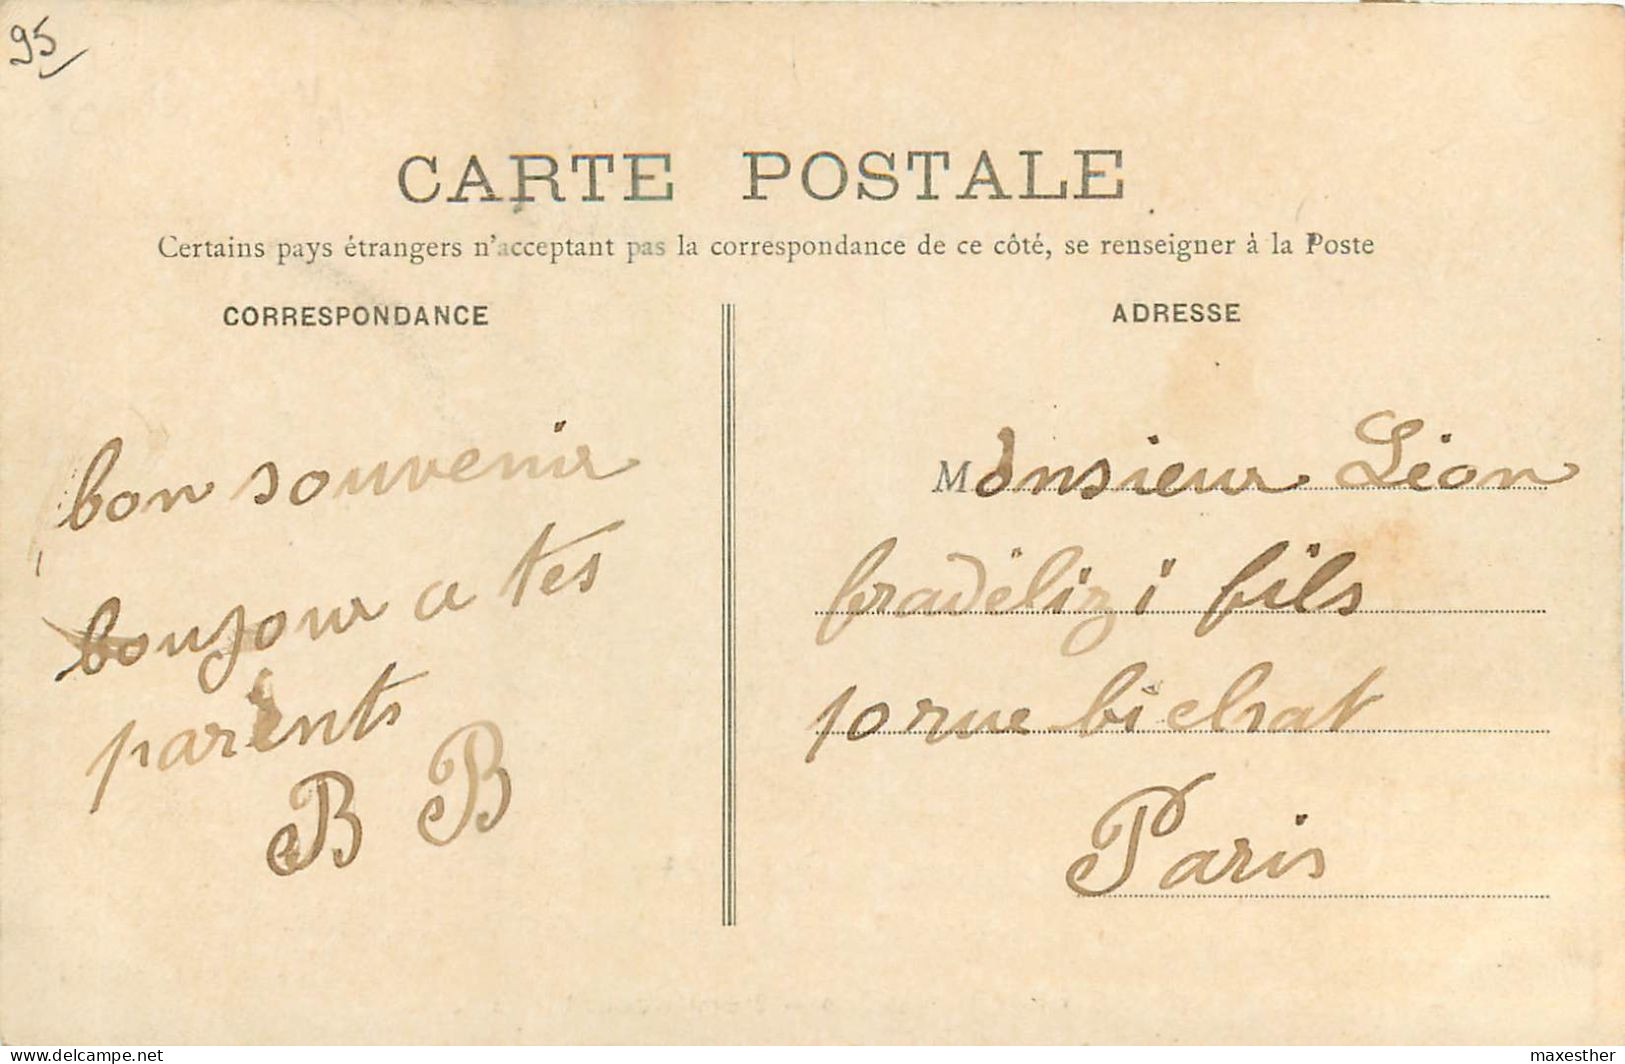 95
CARTE POSTALE
Certains pays étrangers n'acceptant pas la correspondance de ce côté, se renseigner à la Poste
CORRESPONDANCE
bon souvenir
boujour a tes
parents
B B
ADRESSE
Monsieur Léon
bradélizi fils
10 rue bichat
Paris
delcampe.net
maxesther